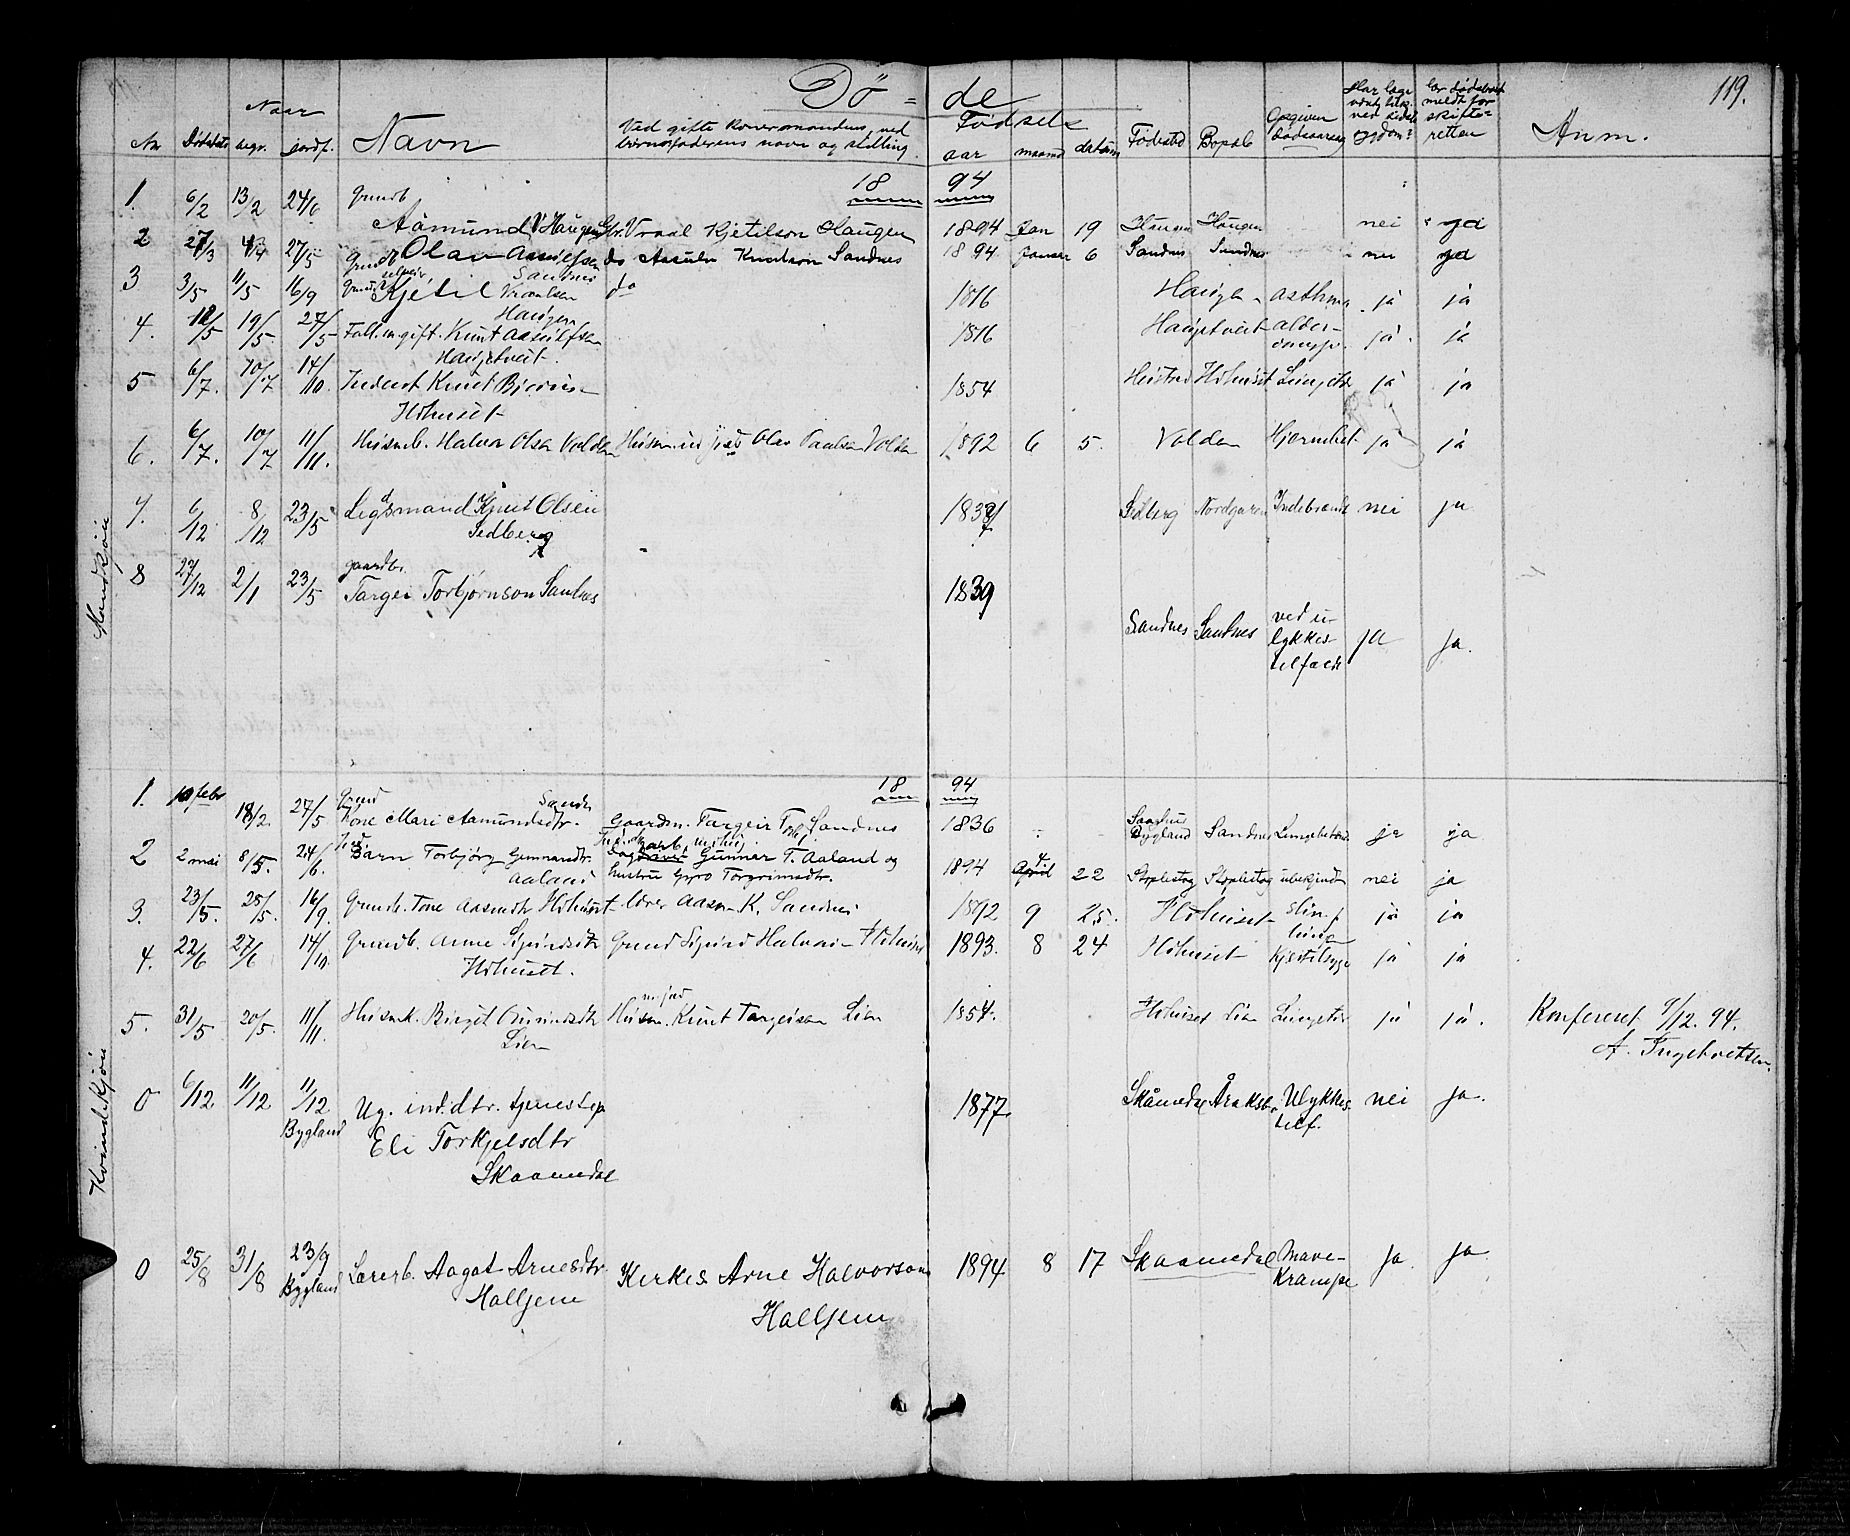 119.
Dö = de
Naar
Nr Dödsdato begr. jordf. Navn
Ved gifte koner mandens, ved
børn faderens navn og stilling.
Fødsels
aar maaned datum Fødested Bopæl
Opgiven dødsaarsag
Har læge været tilst. ved sidste sygdom?
Er dødsfald meldt for skifteretten
Anm.
Mandkjön
18 94
1. 6/2 13/2 24/6 Grundb
Aamund V Haugen Gbr. Vraal Kjetilson Haugen 1894 Jan 19 Haugen Haugen nei ja
2 27/3 4/4 27/5 Grundb Olav Asulfsen Sandnes do Assulv Knutson Sandnes 1894 Januar 6 Sandnes Sandnes nei ja
3 3/5 11/5 16/9 Kjetil Vraalsen Haugen do 1816 Haugen asthma ja ja
4. 12/5 19/5 27/5 Fatt. ugift. Knut Aasulfsen Haugetveit. 1816 Haugetveit alderdoms ja ja
5 6/7. 10/7 14/10. Inderst Knut Bjørns-
Hohuset 1854 Heistad Hohuset Lungebet ja ja
6. 6/7. 10/7 11/11. Huusmb. Halvor Olsen Volden Huusm. ud jord Olav Paulsen Volden 1892 6 5. Volden Hjernebet ja ja
7. 6/12 8/12 23/5 Legdsmand Knut Olsen
Sedberg 1837 Sedberg Nordgaren Indebrande nei ja
8 27/12 2/1 23/5 gaardbr.
Targei Torbjørnson Sandnes 1839
Sandnes Sandnes ved u-
lykkes
tilfælde ja ja.
Kvindekjön
18 94
1. 10 febr 18/2. 27/5 Tone Mari Aamundsdtr. Sandn Gaardm. Targeir T. Sandnes 1836 Bygland Sandnes Lungebetænd ja ja
2 2 mai 8/5. 24/6. Barn Torbjörg Gunnarsdtr. Aaland Gunnar T. Aaland og
hustru Gyro Torgrimsdtr. 1894 4 April 22 Stoplestög Stoplestög ubekjendt nei ja
3. 23/5. 25/5. 16/9. Grundb. Tone Aasmdtr Hohuset lærer Aasm K. Sandnes 1892 9 25. Hohuset ja ja
4. 22/6 27/6 14/10. Grundb. Anne Sigurdsdtr
Hohusett. Grund Sigurd Halvors- Hohuset 1893. 8 24 Hohuset Kjertelsyge ja ja
5. 31/5 20/5. 11/11. Huusmk. Birgit Gunundsdtr
Lien Huusm. m. jord Knut Targeisen Lien 1854. Hohuset Lien Lungetær ja ja. Konfereret 9/12. 94.
A. Ingebretsen.
0 6/12 11/12 11/12
Bygland Ug. ind. dtr. tjenestep
Eli Torkjelsdtr
Skaamedal 1877. Skåmedal Åraksbø Ulykkes
tilf. nei ja.
0 25/8 31/8 23/9
Bygland Lærerb. Aagot Arnesdtr
Halljem Kirkes. Arne Halvorson
Halljem 1894 8 17 Skaamedal Mave-
krampe ja. ja.